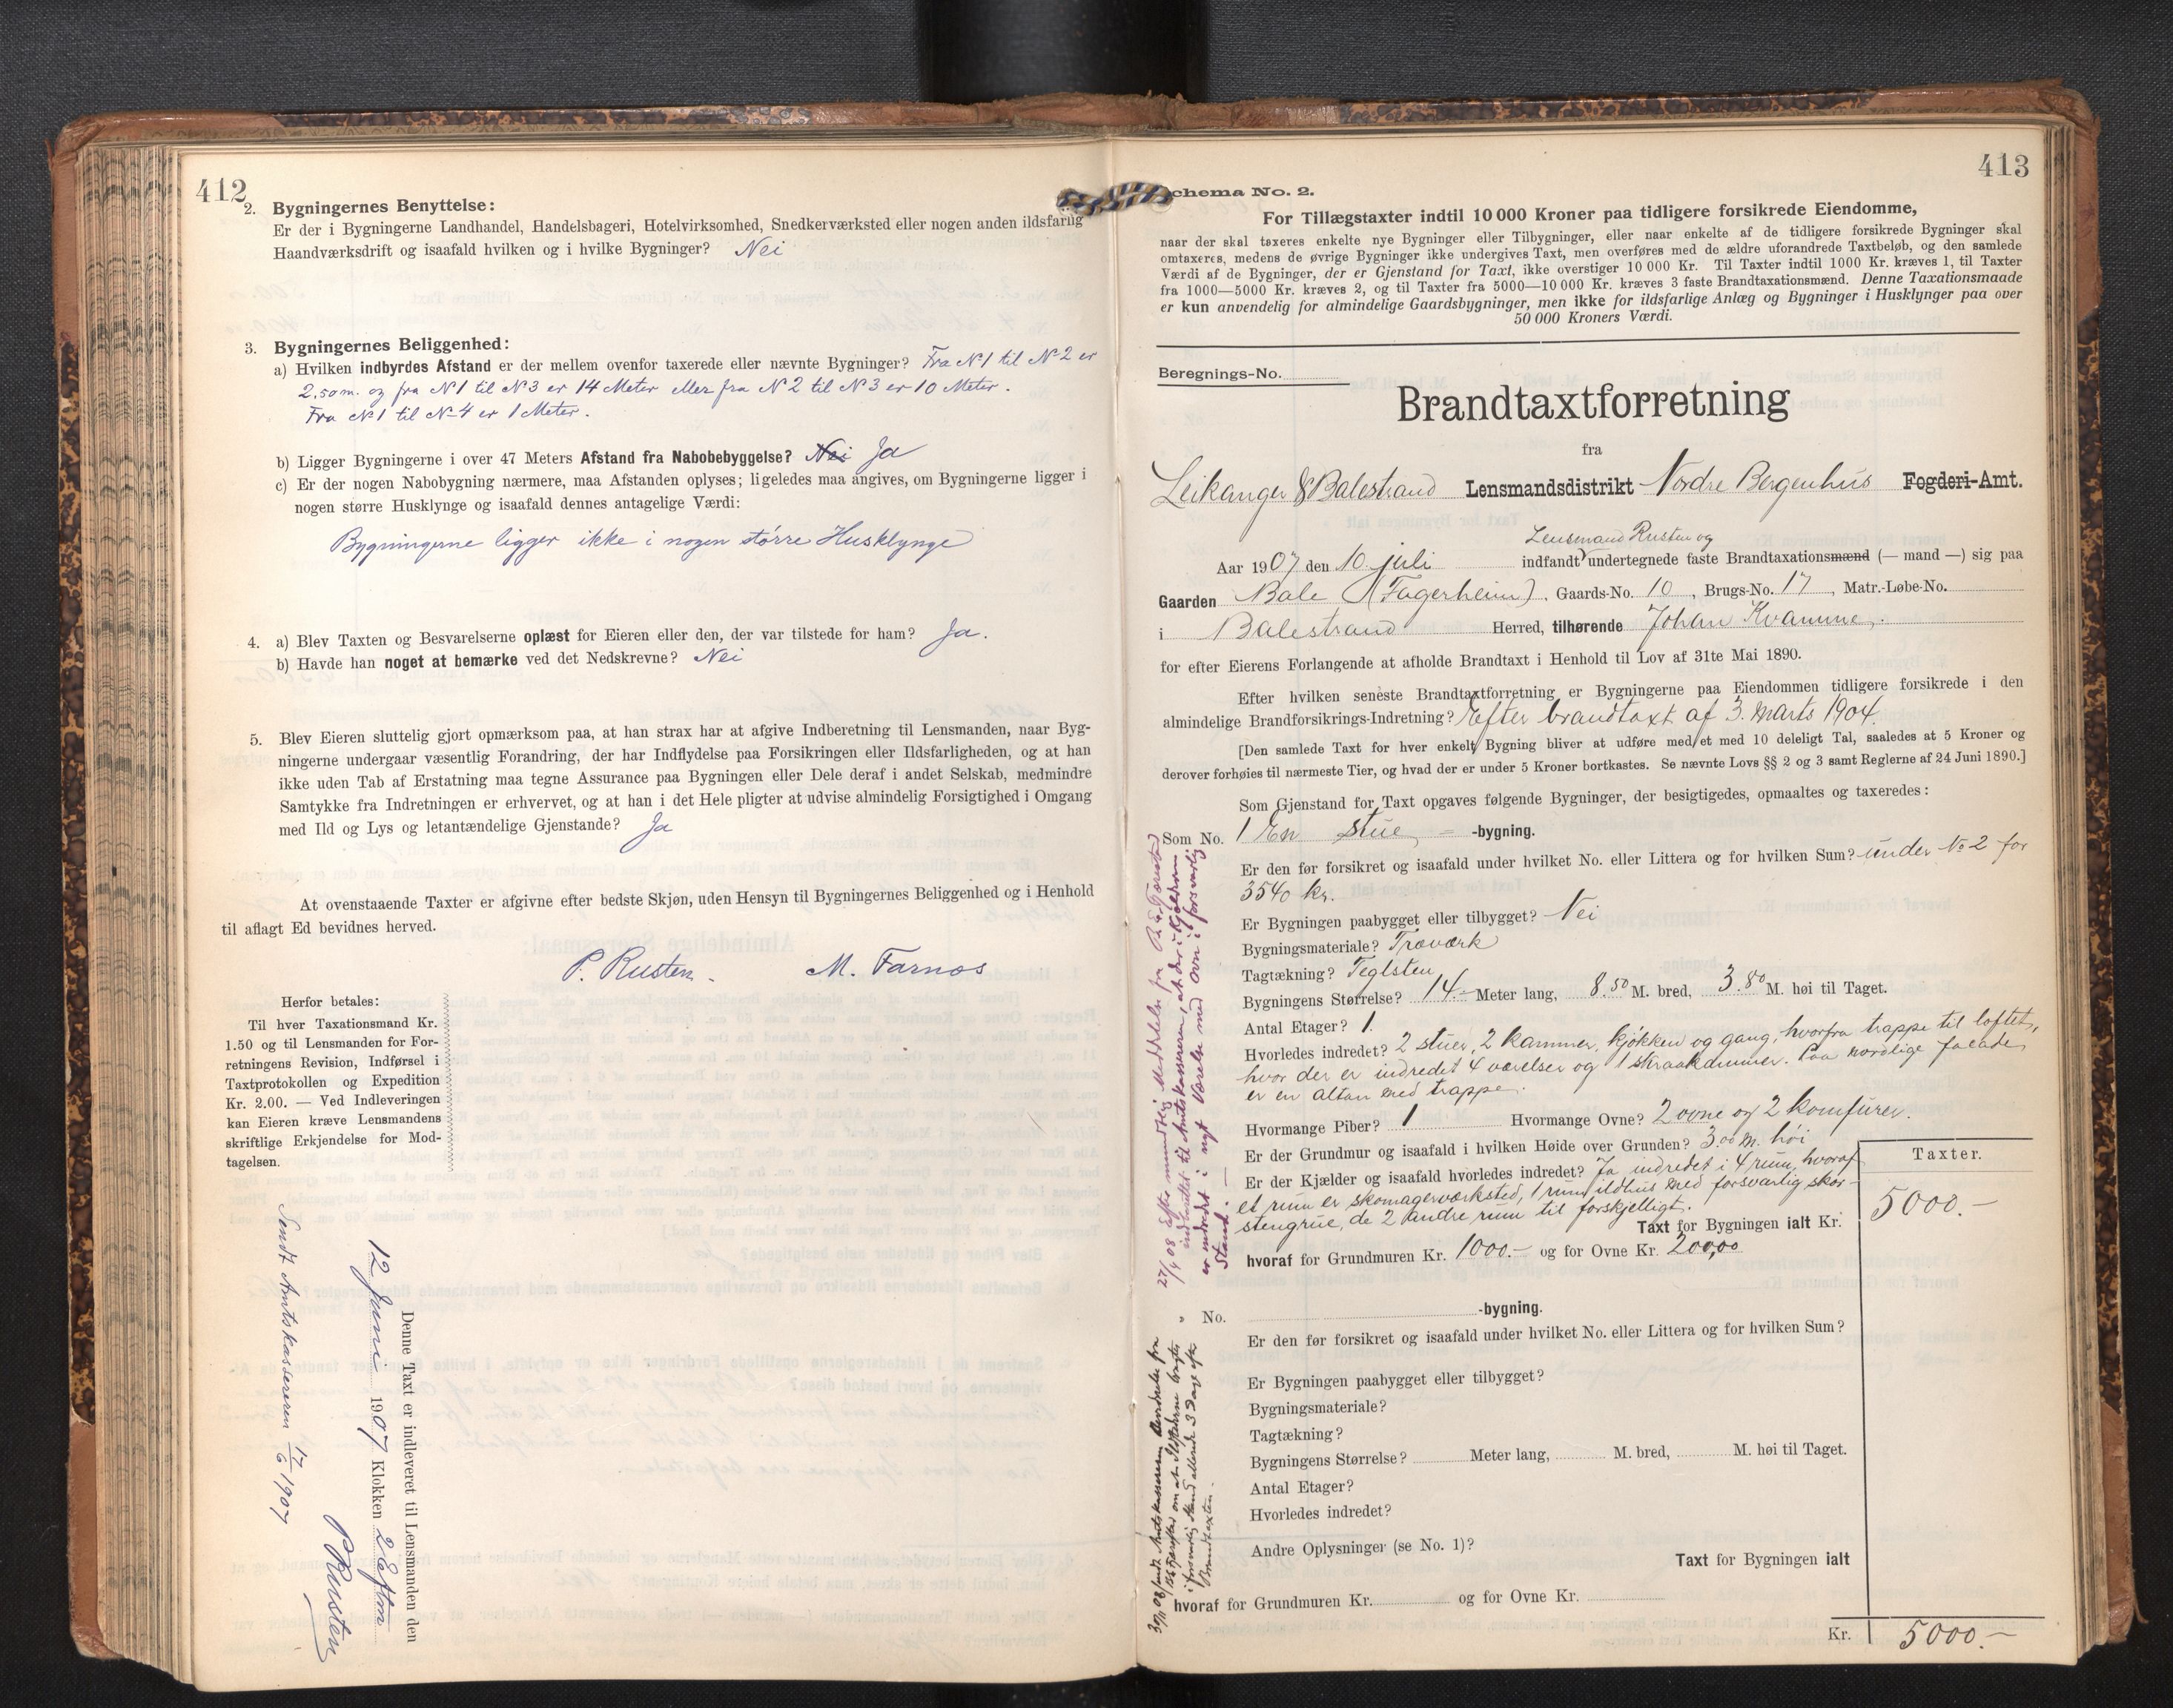 412
2. Bygningernes Benyttelse:
Er der i Bygningerne Landhandel, Handelsbageri, Hotelvirksomhed, Snedkerværksted eller nogen anden ildsfarlig
Haandværksdrift og isaafald hvilken og i hvilke Bygninger? Nei
3. Bygningernes Beliggenhed:
a) Hvilken indbyrdes Afstand er der mellem ovenfor taxerede eller nævnte Bygninger? Fra N 1 til N 2 er
2,50 m. og fra N 1 til N 3 er 14 Meter eller fra N 2 til N 3 er 10 Meter.
Fra N 1 til N 4 er 1 Meter.
b) Ligger Bygningerne i over 47 Meters Afstand fra Nabobebyggelse? Nei Ja
c) Er der nogen Nabobygning nærmere, maa Afstanden oplyses; ligeledes maa angives, om Bygningerne ligger i
nogen større Husklynge og isaafald dennes antagelige Værdi:
Bygningerne ligger ikke i nogen större Husklynge
4. a) Blev Taxten og Besvarelserne oplæst for Eieren eller den, der var tilstede for ham? Ja.
b) Havde han noget at bemærke ved det Nedskrevne? Nei
5. Blev Eieren sluttelig gjort opmærksom paa, at han strax har at afgive Indberetning til Lensmanden, naar Byg-
ningerne undergaar væsentlig Forandring, der har Indflydelse paa Forsikringen eller Ildsfarligheden, og at han
ikke uden Tab af Erstatning maa tegne Assurance paa Bygningen eller Dele deraf i andet Selskab, medmindre
Samtykke fra Indretningen er erhvervet, og at han i det Hele pligter at udvise almindelig Forsigtighed i Omgang
med Ild og Lys og letantændelige Gjenstande? Ja
At ovenstaaende Taxter er afgivne efter bedste Skjøn, uden Hensyn til Bygningernes Beliggenhed og i Henhold
til aflagt Ed bevidnes herved.
P. Rusten. M. Farnos
Herfor betales:
Til hver Taxationsmand Kr.
1.50 og til Lensmanden for For-
retningens Revision, Indførsel i
Taxtprotokollen og Expedition
Kr. 2.00. — Ved Indleveringen
kan Eieren kræve Lensmandens
skriftlige Erkjendelse for Mod-
tagelsen.
Denne Taxt er indleveret til Lensmanden den
12 Juni 1907 Klokken 2 Eftm
P Rusten
Sendt Amtskassereren 17/6 1907
413
Schema No. 2.
For Tillægstaxter indtil 10 000 Kroner paa tidligere forsikrede Eiendomme,
naar der skal taxeres enkelte nye Bygninger eller Tilbygninger, eller naar enkelte af de tidligere forsikrede Bygninger skal
omtaxeres, medens de øvrige Bygninger ikke undergives Taxt, men overføres med de ældre uforandrede Taxtbeløb, og den samlede
Værdi af de Bygninger, der er Gjenstand for Taxt, ikke overstiger 10 000 Kr. Til Taxter indtil 1000 Kr. kræves 1, til Taxter
fra 1000—5000 Kr. kræves 2, og til Taxter fra 5000—10 000 Kr. kræves 3 faste Brandtaxationsmænd. Denne Taxationsmaade
er kun anvendelig for almindelige Gaardsbygninger, men ikke for ildsfarlige Anlæg og Bygninger i Husklynger paa over
50 000 Kroners Værdi.
Beregnings-No.
Brandtaxtforretning
fra
Leikanger & Balestrand Lensmandsdistrikt Nordre Bergenhus Fogderi-Amt.
Lensmand Rusten og
Aar 1907 den 10. juli indfandt undertegnede faste Brandtaxationsmænd (— mand —) sig paa
Gaarden Bale (Fagerheim), Gaards-No. 10, Brugs-No. 17, Matr.-Løbe-No.
i Balestrand Herred, tilhørende Johan Kvamme,
for efter Eierens Forlangende at afholde Brandtaxt i Henhold til Lov af 31te Mai 1890.
Efter hvilken seneste Brandtaxtforretning er Bygningerne paa Eiendommen tidligere forsikrede i den
almindelige Brandforsikrings-Indretning? Efter brandtaxt af 3. marts 1904.
[Den samlede Taxt for hver enkelt Bygning bliver at udføre med et med 10 deleligt Tal, saaledes at 5 Kroner og
derover forhøies til nærmeste Tier, og hvad der er under 5 Kroner bortkastes. Se nævnte Lovs §§ 2 og 3 samt Reglerne af 24 Juni 1890.]
Som Gjenstand for Taxt opgaves følgende Bygninger, der besigtigedes, opmaaltes og taxeredes:
Som No. 1 En stue -bygning.
Er den før forsikret og isaafald under hvilket No. eller Littera og for hvilken Sum? under No 2 for
3540 kr.
Er Bygningen paabygget eller tilbygget? Nei
Bygningsmateriale? Træværk
Tagtækning? Teglsten
Bygningens Størrelse? 14.- Meter lang, 8.50 M. bred, 3.80 M. høi til Taget.
Antal Etager? 1.
Hvorledes indredet? 2 stuer, 2 kammer, kjøkken og gang, hvorfra trappe til loftet,
hvor der er indredet 4 værelser og 1 skraakammer. Paa nordlige facade
er en altan med trappe.
Hvormange Piber? 1 Hvormange Ovne? 2 ovne og 2 komfurer.
Er der Grundmur og isaafald i hvilken Høide over Grunden? 3.00 m. høi
Er der Kjælder og isaafald hvorledes indredet? Ja indredet i 4 rum, hvoraf
et rum er skomagerværksted, 1 rum ildhus med forsvarlig skor-
stengrue, de 2 andre rum til forskjelligt.
Taxter.
Taxt for Bygningen ialt Kr. 5000.-
hvoraf for Grundmuren Kr. 1000.- og for Ovne Kr. 200,00
27/4 08 Efter mundtlig Meddelelse fra
indberettet til Amtskassereren, at der i Kjælderen
er indredet i nyt Værelse med Ovn i forsvarlig
Stand. —
" No. -bygning.
Er den før forsikret og isaafald under hvilket No. eller Littera og for hvilken Sum?
Er Bygningen paabygget eller tilbygget?
Bygningsmateriale?
Tagtækning?
Bygningens Størrelse? Meter lang, M. bred, M. høi til Taget.
Antal Etager?
Hvorledes indredet?
Andre Oplysninger (se No. 1)?
Taxt for Bygningen ialt
hvoraf for Grundmuren Kr. og for Ovne Kr.
Kr. 5000.-
sendt Amtskassereren
om at Ildstederne bragtes
i forsvarlig Stand allerede 3 Dage efter
Brandtaxten.